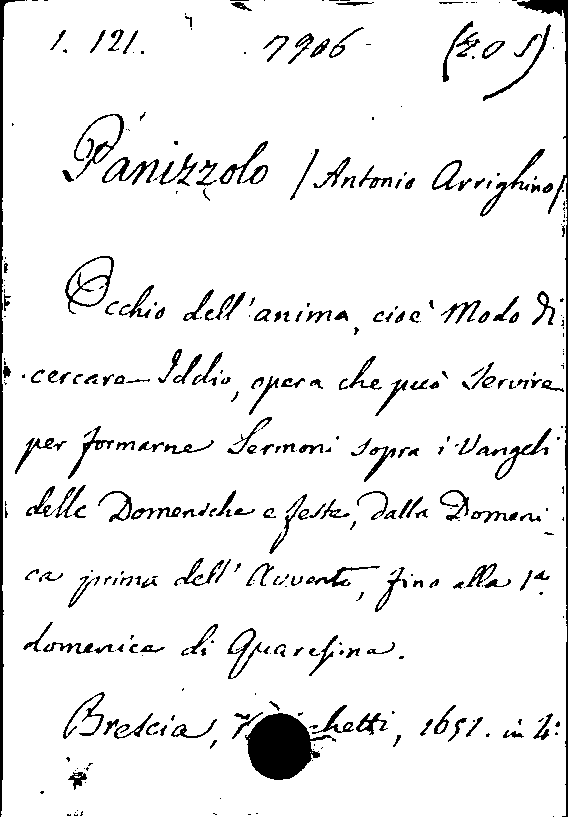 1. 121. 7906 (Z.O S)
Panizzolo (Antonio Arrighino)
Occhio dell'anima, cioè Modo di
cercare Iddio, opera che può servire
per formarne Sermoni sopra i Vangeli
delle Domeniche e feste, dalla Domeni-
ca prima dell'Avvento, fino alla 1ª
domenica di Quaresima.
Brescia, 1651. in 4: